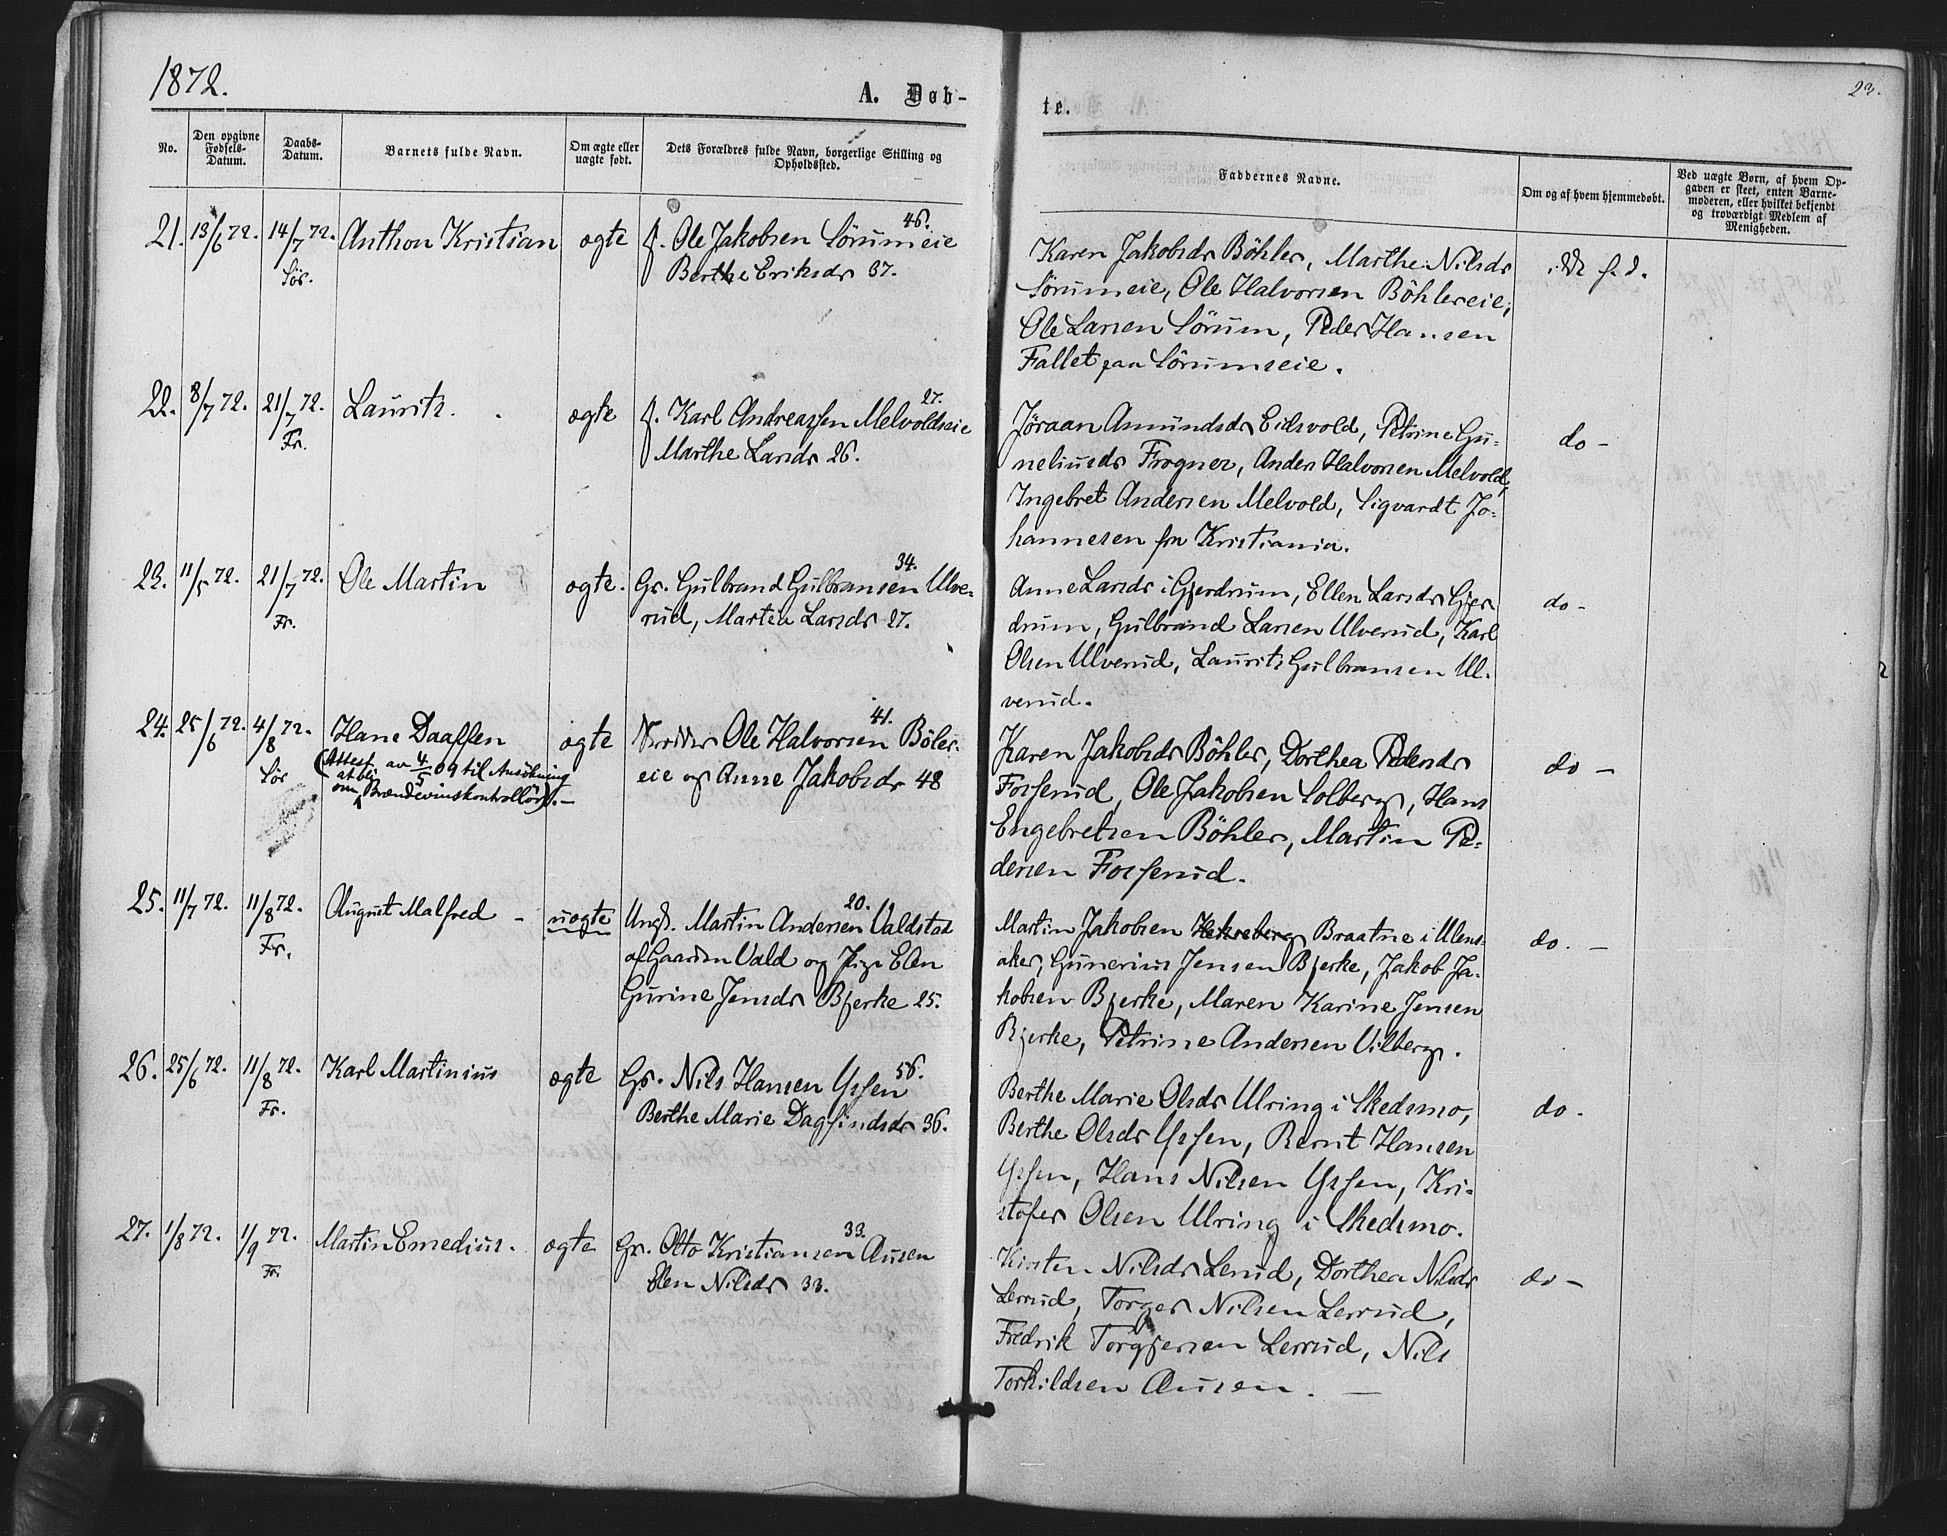 1872.
A. Døb-
te.
23.
No.
Den opgivne Fødsels-Datum.
Daabs-Datum.
Barnets fulde Navn.
Om ægte eller uægte født.
Dets Forældres fulde Navn, borgerlige Stilling og Opholdssted.
Faddernes Navne.
Om og af hvem hjemmedøbt.
Ved uægte Børn, af hvem Op-
gaven er skeet, enten Barne-
moderen, eller hvilket bekjendt
og troværdigt Medlem af
Menigheden.
21. 13/6 72. 14/7 72. Anthon Kristian ægte f. Ole Jakobsen Sörumeie 46.
Sör.
Berthe Eriksdr 37.
Karen Jakobsdr Böhler, Marthe Nilsdr
Sörumeie, Ole Halvorsen Böhlereie,
Ole Larsen Sörum, Peder Hansen
Fallet paa Sörumseie.
22. 8/7 72. 21/7 72. Laurits. ægte f. Karl Andreassen Melvoldseie 27.
Fr.
Marthe Larsdr 26.
Jöraan Amundsdr Eidsvold, Petrine Gu-
neliusdr Frogner, Anders Halvorsen Melvold,
Ingebret Andersen Melvold, Sigvardt Jo-
hannesen fra Kristiania.
do -
23. 11/5 72. 21/7 72. Ole Martin ægte. Gr. Gulbrand Gulbransen Ulve- 34.
Fr.
rud, Martea Larsdr 27.
Anne Larsdr i Gjerdrum, Ellen Larsdr Gjer-
drum, Gulbrand Larsen Ulverud, Karl
Olsen Ulverud, Laurits Gulbransen Ul-
verud.
do -
24. 25/6 72. 4/8 72. Hans Daassen ægte Ole Halvorsen Böler- 41.
Sör
(Attest av 4/5 09 til Ansökning
om at bli Brændevinskontrollör). -
eie og Anne Jakobsdr 48
Karen Jakobsdr Böhler, Dorthea Pedersdr
Fosserud, Ole Jakobsen Solberg, Hans
Engebretsen Böhler, Martin Pe-
dersen Fosserud.
do -
25. 11/7 72. 11/8 72. August Malfred - uægte Ungk. Martin Andersen Valdstad 20.
Fr.
af Gaarden Vald og Pige Elen
Gurine Jensdr Bjerke 25.
Martin Jakobsen Braatne i Ulens-
aker, Gunerius Jensen Bjerke, Jakob Ja-
kobsen Bjerke, Maren Karine Jensen
Bjerke, Petrine Andersen Vilberg.
do. -
26. 25/6 72. 11/8 72. Karl Martinius ægte Gr. Nils Hansen Yssen 56.
Fr.
Berthe Marie Dagfindsdr 36.
Berthe Marie Olsdr Ulring i Skedsmo,
Berthe Olsdr Yssen, Bernt Hansen
Yssen, Hans Nilsen Yssen, Kri-
stofer Olsen Ulring i Skedsmo.
do.
27. 1/8 72. 1/9 72. Martin Emedius. ægte Gr. Otto Kristiansen Ausen 33.
Fr.
Elen Nilsdr 33.
Kirsten Nilsdr Lerud, Dorthea Nilsdr
Lerrud, Torger Nilsen Lerrud,
Fredrik Torgjersen Lerrud, Nils
Torkildsen Ausen. -
do -